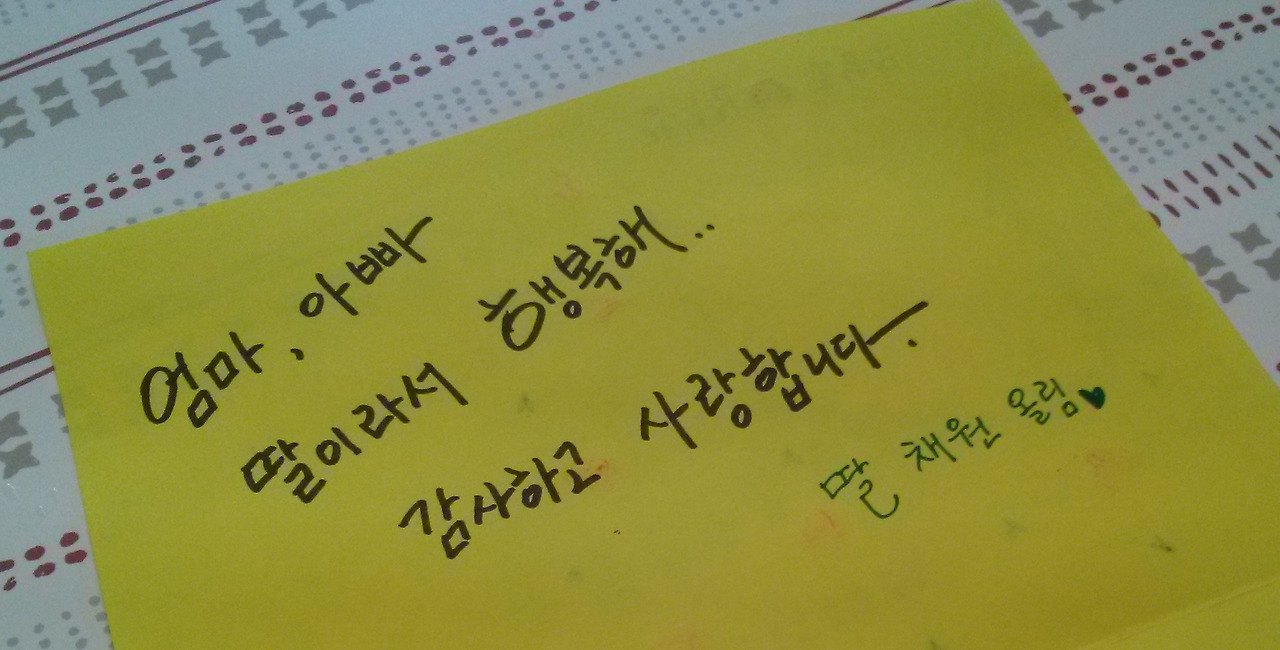 엄마, 아빠
딸이라서 행복해..
감사하고 사랑합니다.
딸 채원 올림♥